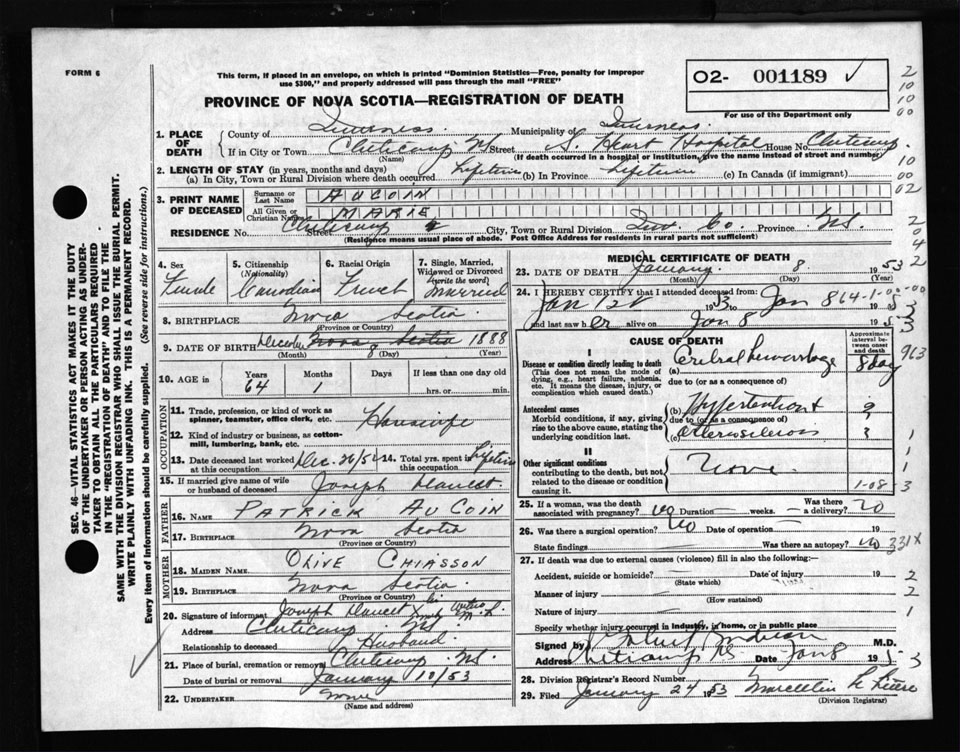 FORM 6
This form, if placed in an envelope, on which is printed "Dominion Statistics—Free, penalty for improper
use $300," and properly addressed will pass through the mail "FREE"
O2- 001189 ✓
For use of the Department only
PROVINCE OF NOVA SCOTIA—REGISTRATION OF DEATH
1. PLACE OF DEATH
County of Inverness Municipality of Inverness
If in City or Town Cheticamp NS Street S. Heart Hospital House No. Cheticamp
(Name) (If death occurred in a hospital or institution, give the name instead of street and number)
2. LENGTH OF STAY (in years, months and days)
(a) In City, Town or Rural Division where death occurred Lifetime (b) In Province Lifetime (c) In Canada (if immigrant)
3. PRINT NAME OF DECEASED
Surname or Last Name AUCOIN
All Given or Christian Names MARIE
RESIDENCE No. Street Cheticamp City, Town or Rural Division Inv. Co. Province NS.
(Residence means usual place of abode. Post Office Address for residents in rural parts not sufficient)
4. Sex Female
5. Citizenship (Nationality) Canadian
6. Racial Origin French
7. Single, Married, Widowed or Divorced (write the word) Married
8. BIRTHPLACE Nova Scotia
(Province or Country)
9. DATE OF BIRTH December Nova Scotia 8 1888
(Month) (Day) (Year)
10. AGE in Years 64 Months 1 Days If less than one day old
hrs. or min.
OCCUPATION
11. Trade, profession, or kind of work as spinner, teamster, office clerk, etc. Housewife
12. Kind of industry or business, as cotton-mill, lumbering, bank, etc.
13. Date deceased last worked at this occupation Dec. 26/52 14. Total yrs. spent in this occupation Lifetime
15. If married give name of wife or husband of deceased Joseph Doucet
FATHER
16. NAME PATRICK AUCOIN
17. BIRTHPLACE Nova Scotia
(Province or Country)
MOTHER
18. MAIDEN NAME OLIVE CHIASSON
19. BIRTHPLACE Nova Scotia
(Province or Country)
20. Signature of informant Joseph Doucet X
Address Cheticamp NS
Relationship to deceased Husband
21. Place of burial, cremation or removal Cheticamp NS
Date of burial or removal January 10/53
22. UNDERTAKER None
(Name and address)
MEDICAL CERTIFICATE OF DEATH
23. DATE OF DEATH January 8 1953
(Month) (Day) (Year)
24. I HEREBY CERTIFY that I attended deceased from
Jan 1953 Jan 8
and last saw her alive on Jan 8 1953
CAUSE OF DEATH
Approximate interval between onset and death
I
Disease or condition directly leading to death (a) Cerebral hemorrhage 8 day
(This does not mean the mode of dying, e.g., heart failure, asthenia, etc. It means the disease, injury, or complication which caused death.)
due to (or as a consequence of)
Antecedent causes (b) Hypertension + ?
Morbid conditions, if any, giving rise to the above cause, stating the underlying condition last.
due to (or as a consequence of)
(c) Arteriosclerosis ?
II
Other significant conditions None
contributing to the death, but not related to the disease or condition causing it.
1-08
25. If a woman, was the death associated with pregnancy? no Duration — weeks. Was there a delivery? no
26. Was there a surgical operation? No Date of operation 19
State findings Was there an autopsy? no 331X
27. If death was due to external causes (violence) fill in also the following:—
Accident, suicide or homicide? Date of injury 19
(State which)
Manner of injury
(How sustained)
Nature of injury
Specify whether injury occurred in industry, in home, or in public place
Signed by M.D.
Address Cheticamp NS Date Jan 8 1953
28. Division Registrar's Record Number
29. Filed January 24 1953 Marcellin
(Division Registrar)
SEC. 46—VITAL STATISTICS ACT MAKES IT THE DUTY
OF THE UNDERTAKER OR PERSON ACTING AS UNDER-
TAKER TO OBTAIN ALL THE PARTICULARS REQUIRED
IN THE "REGISTRATION OF DEATH" AND TO FILE THE
SAME WITH THE DIVISION REGISTRAR WHO SHALL ISSUE THE BURIAL PERMIT.
WRITE PLAINLY WITH UNFADING INK. THIS IS A PERMANENT RECORD.
Every item of information should be carefully supplied. (See reverse side for instructions.)